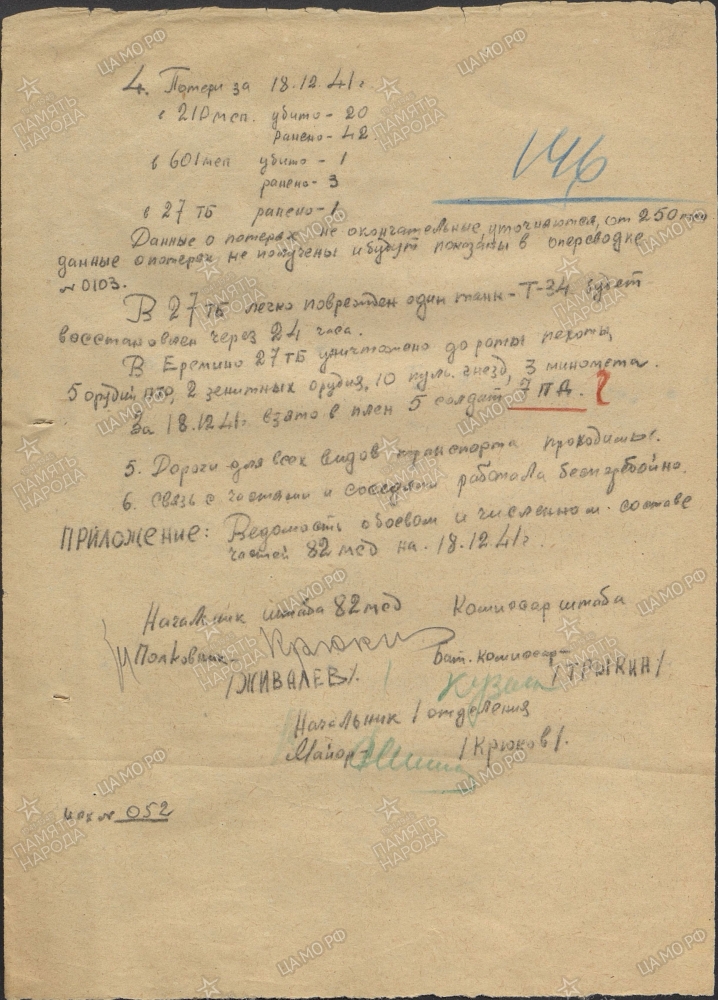 146
4. Потери за 18.12.41 г.
в 210 мсп. убито - 20
ранено - 42
в 601 мсп убито - 1
ранено - 3
в 27 ТБ ранено - 1
Данные о потерях не окончательные, уточняются, от 250
данные о потерях не получены и будут показаны в оперсводке
№ 0103.
В 27 ТБ легко поврежден один танк - Т-34 будет
восстановлен через 24 часа.
В Еремино 27 ТБ уничтожено до роты пехоты,
5 орудий ПТО, 2 зенитных орудия, 10 пул. гнезд, 3 миномета.
За 18.12.41 г взято в плен 5 солдат 7 ПД.
5. Дороги для всех видов транспорта проходимы.
6. Связь с частями и соседями работала бесперебойно.
ПРИЛОЖЕНИЕ: Ведомость о боевом и численном составе
частей 82 мсд на 18.12.41 г.
Начальник штаба 82 мсд Комиссар штаба
Полковник - Бат. комиссар -
/ЖИВАЛЕВ/. /ТРЫКИН/
Начальник 1 отделения
Майор - /Крюков/.
исх № 052